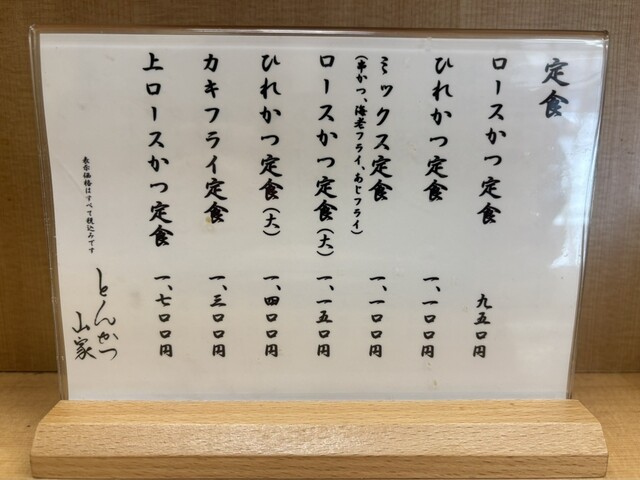 定食
ロースかつ定食 九五口円
ひれかつ定食 一、一口口円
ミックス定食 一、一口口円
(串かつ、海老フライ、あじフライ)
ロースかつ定食(大) 一、一五口円
ひれかつ定食(大) 一、四口口円
カキフライ定食 一、三口口円
上ロースかつ定食 一、七口口円
表示価格はすべて税込みです
とんかつ
山家